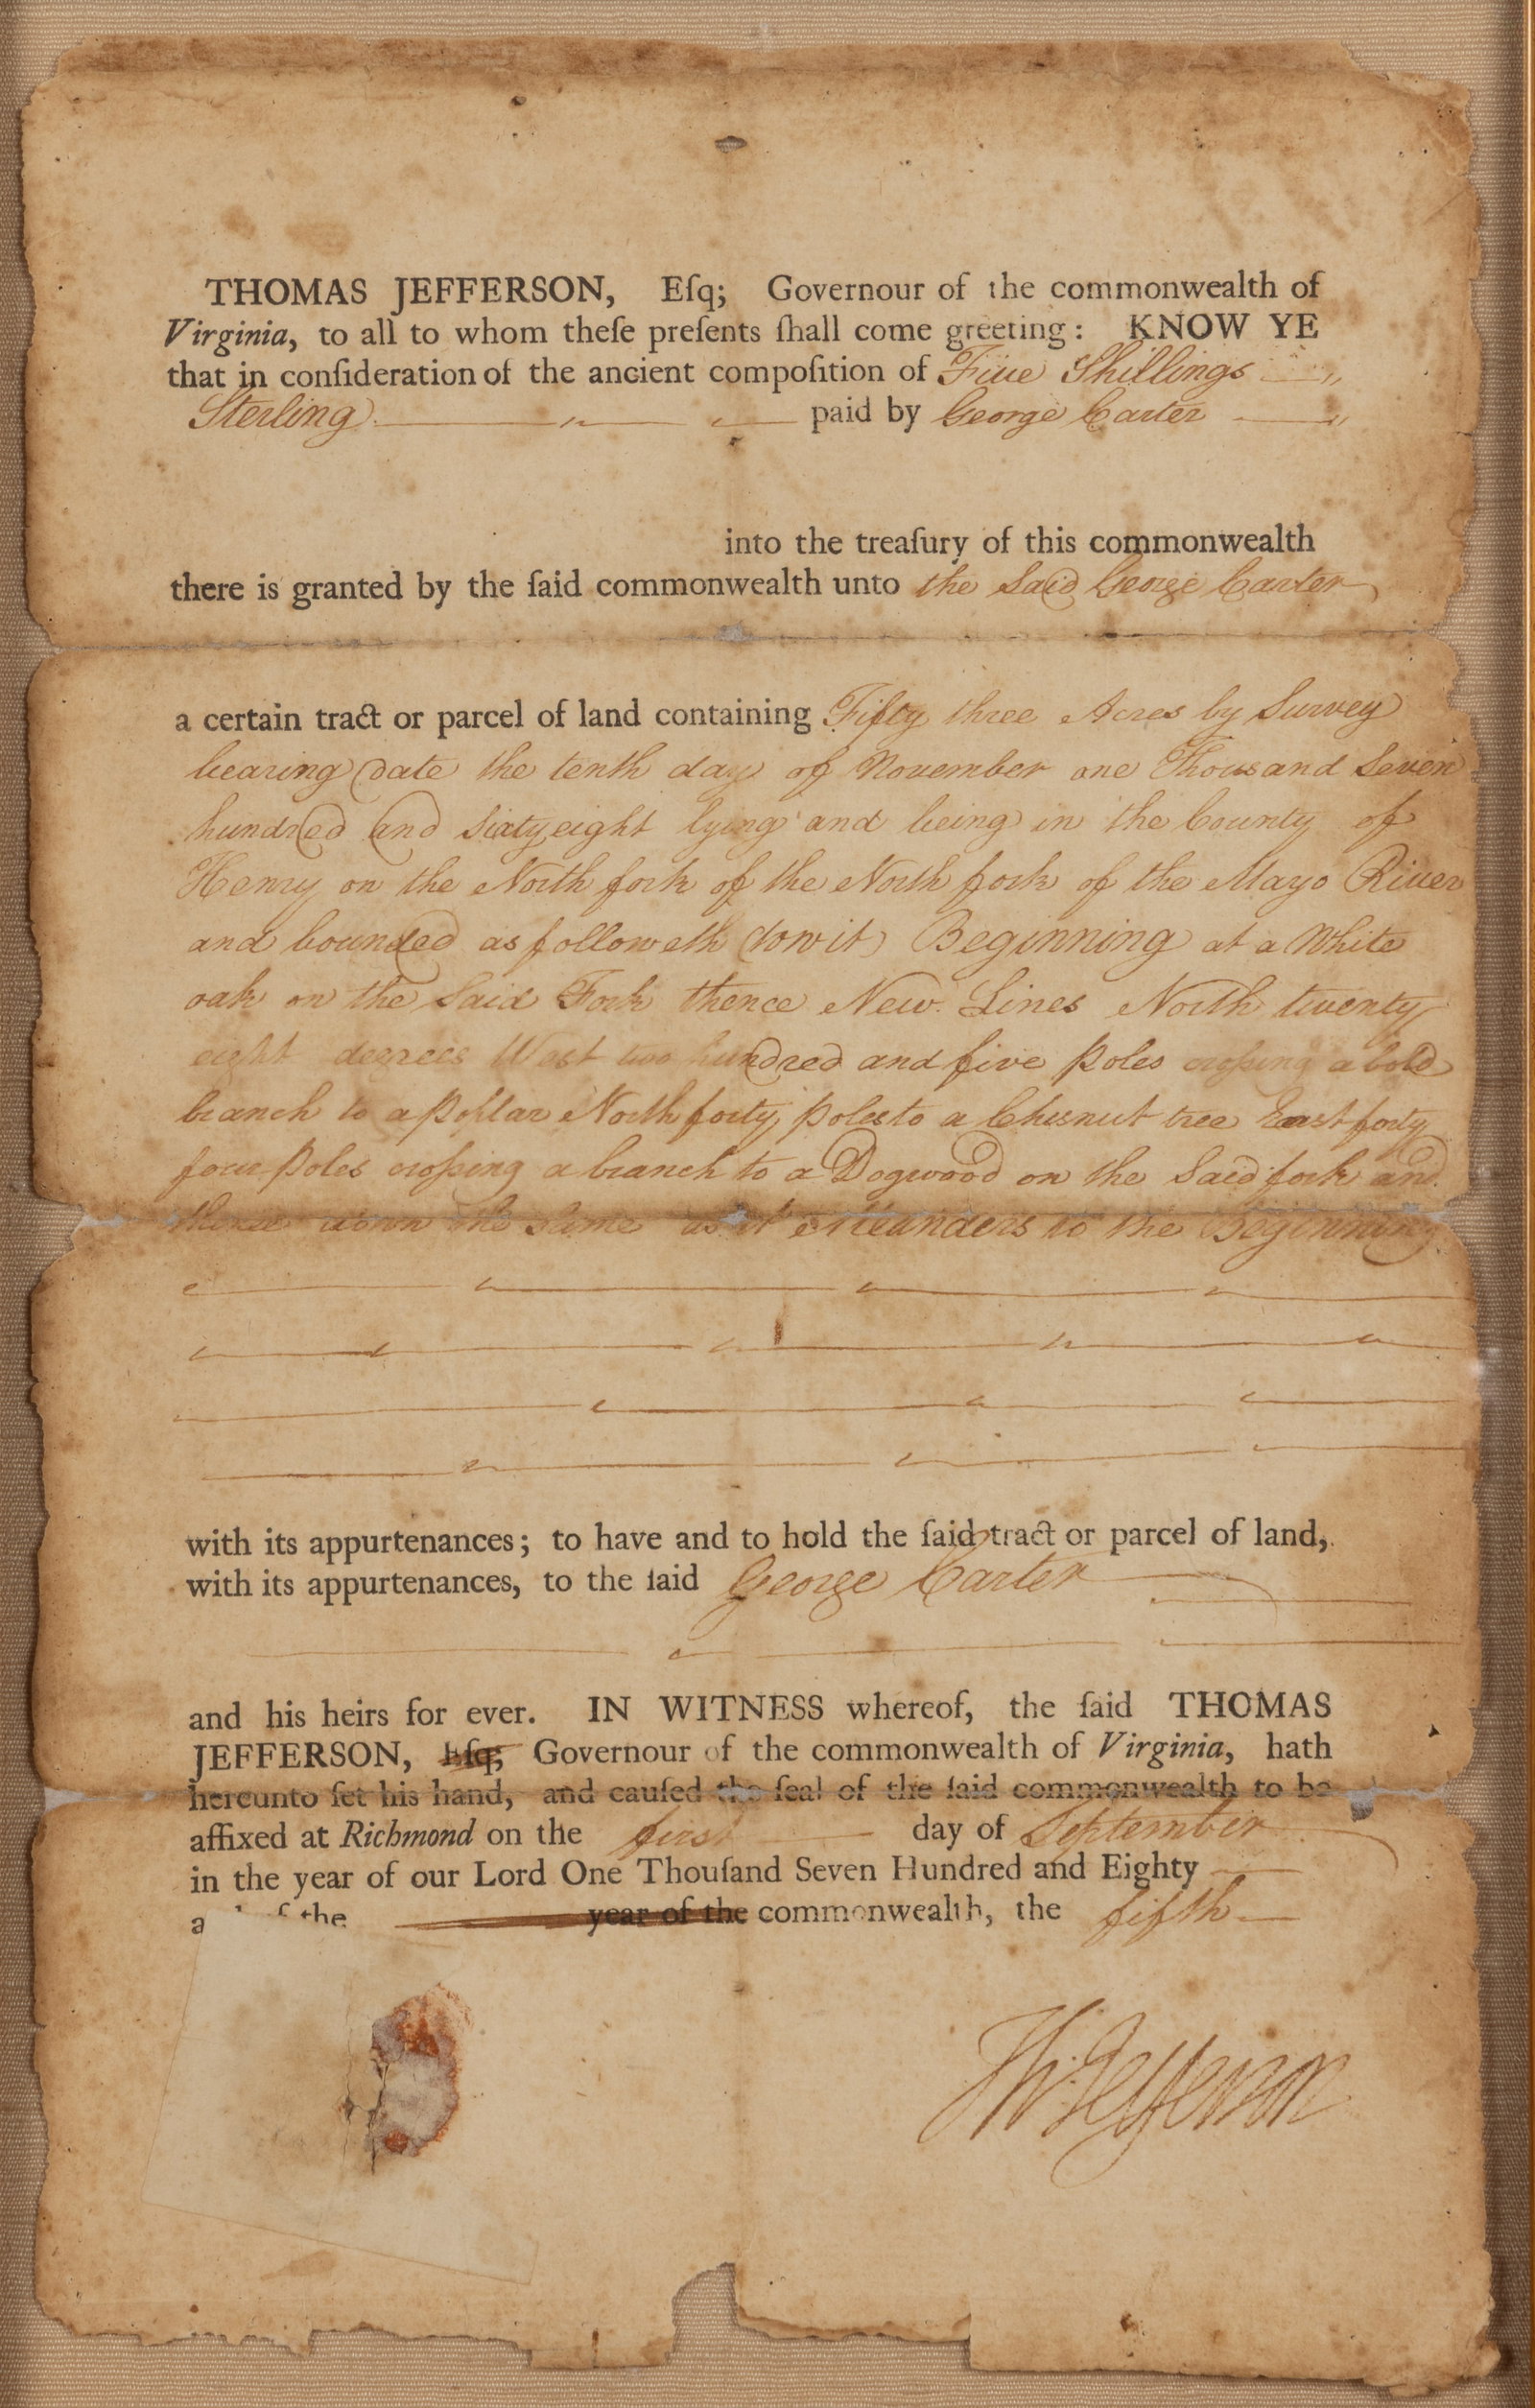 THOMAS JEFFERSON, Eſq; Governour of the commonwealth of
Virginia, to all to whom theſe preſents ſhall come greeting: KNOW YE
that in conſideration of the ancient compoſition of Five Shillings
Sterling paid by George Carter
into the treaſury of this commonwealth
there is granted by the ſaid commonwealth unto the Said George Carter
a certain tract or parcel of land containing Fifty three Acres by Survey
bearing date the tenth day of November one Thousand Seven
hundred and Sixty eight lying and being in the County of
Henry on the North fork of the North fork of the Mayo River
and bounded as followeth (towit) Beginning at a White
oak on the Said Fork thence New Lines North twenty
eight degrees West two hundred and five poles croſsing a bold
branch to a poplar North forty poles to a Chesnut tree East forty
four poles croſsing a branch to a Dogwood on the Said fork and
thence down the Same as it Meanders to the Beginning
with its appurtenances; to have and to hold the ſaid tract or parcel of land,
with its appurtenances, to the ſaid George Carter
and his heirs for ever. IN WITNESS whereof, the ſaid THOMAS
JEFFERSON, Eſq; Governour of the commonwealth of Virginia, hath
hereunto ſet his hand, and cauſed the ſeal of the ſaid commonwealth to be
affixed at Richmond on the first day of September
in the year of our Lord One Thouſand Seven Hundred and Eighty
of the year of the commonwealth, the fifth
Th: Jefferson